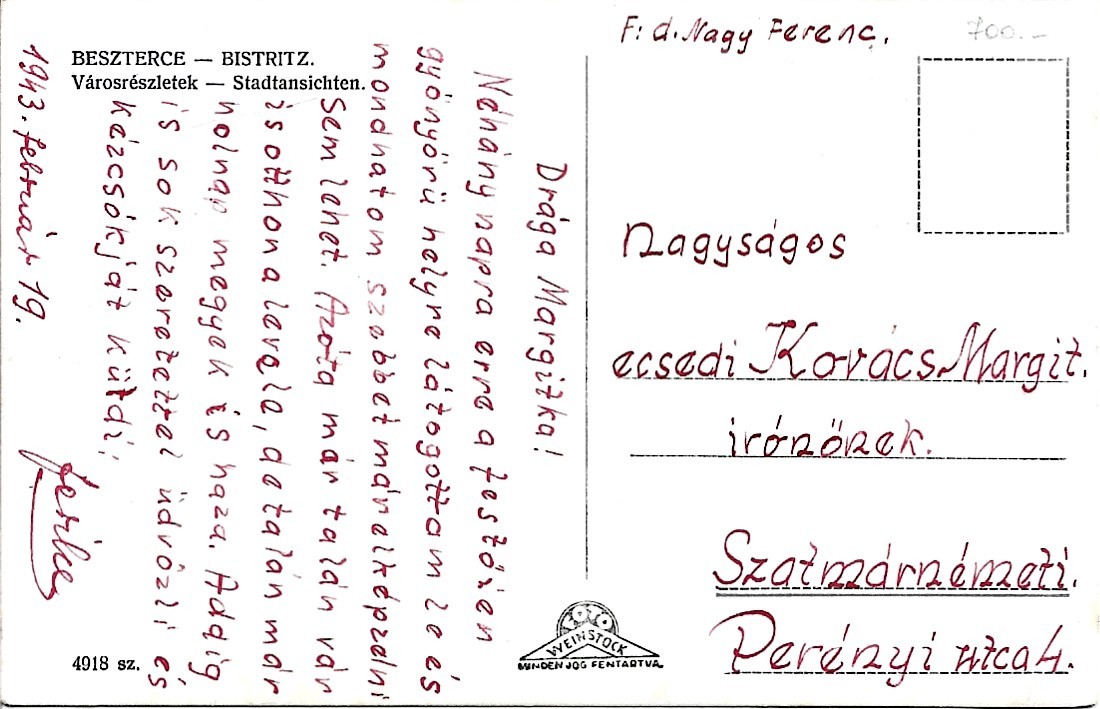 BESZTERCE — BISTRITZ.
Városrészletek — Stadtansichten.
Drága Margitka!
Néhány napra erre a festőien
gyönyörü helyre látogattam le és
mondhatom szebbet már elképzelni
sem lehet. Azóta már talán vár
is otthon a levele, de talán már
holnap megyek is haza. Addig
is sok szeretettel üdvözli és
kézcsókját küldi;
Ferike
1943. február 19.
4918 sz.
F: d. Nagy Ferenc.
700.-
Nagyságos
ecsedi Kovács Margit.
írónőnek.
Szatmárnémeti.
Perényi utca 4.
FOTO
WEINSTOCK
MINDEN JOG FENTARTVA.